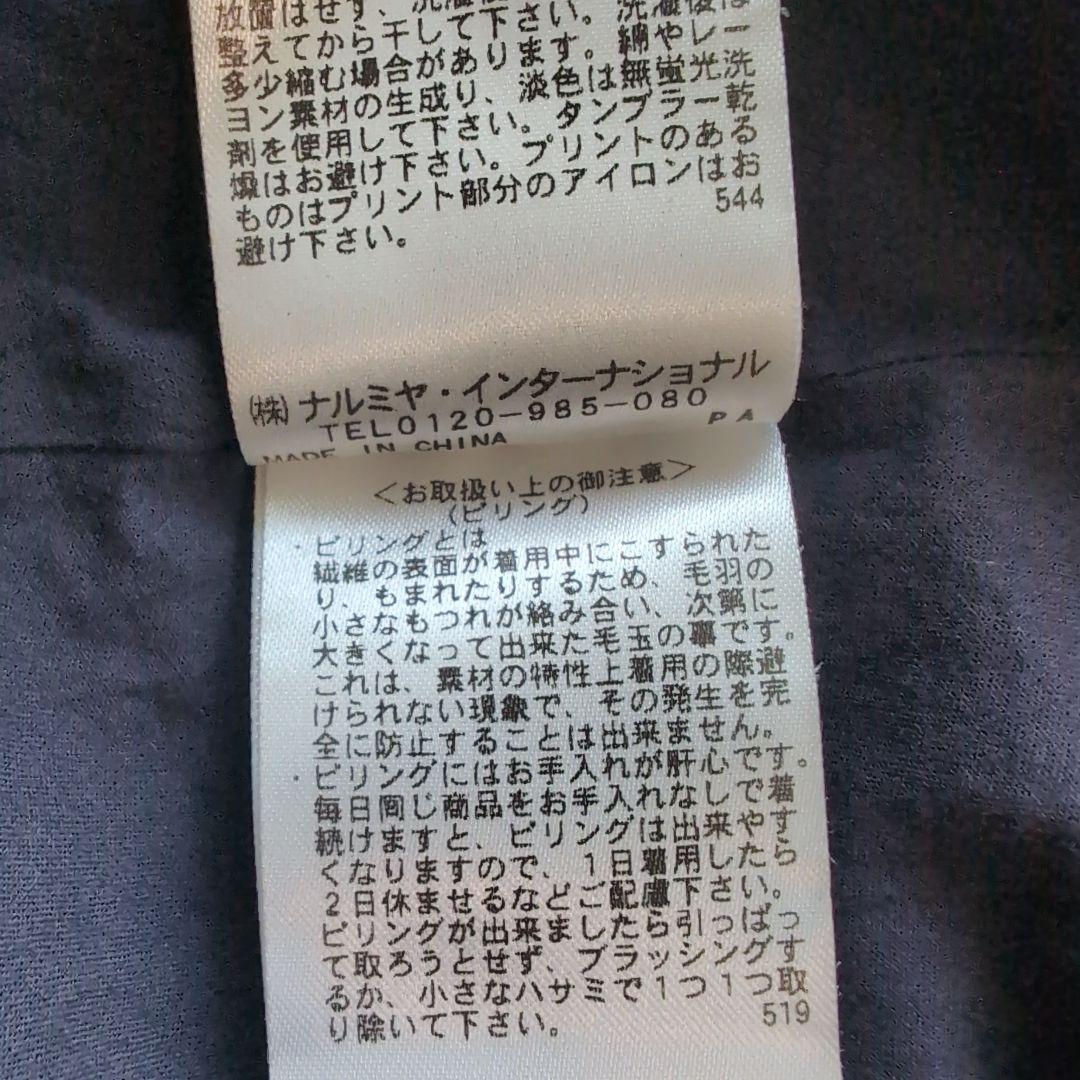 放置はせず、洗濯
整えてから干して下さい。洗濯後は
多少縮む場合があります。綿やレー
ヨン素材の生成り、淡色は無蛍光洗
剤を使用して下さい。タンブラー乾
燥はお避け下さい。プリントのある
ものはプリント部分のアイロンはお
避け下さい。
544
(株)ナルミヤ・インターナショナル
TEL0120-985-080
MADE IN CHINA P.A
<お取扱い上の御注意>
(ピリング)
・ピリングとは
繊維の表面が着用中にこすられた
り、もまれたりするため、毛羽の
小さなもつれが絡み合い、次第に
大きくなって出来た毛玉の事です。
これは、素材の特性上着用の際避
けられない現象で、その発生を完
全に防止することは出来ません。
・ピリングにはお手入れが肝心です。
毎日同じ商品をお手入れなしで着
続けますと、ピリングは出来やす
くなりますので、1日着用したら
2日休ませるなどご配慮下さい。
ピリングが出来ましたら引っぱっ
て取ろうとせず、ブラッシングす
るか、小さなハサミで1つ1つ取
り除いて下さい。
519